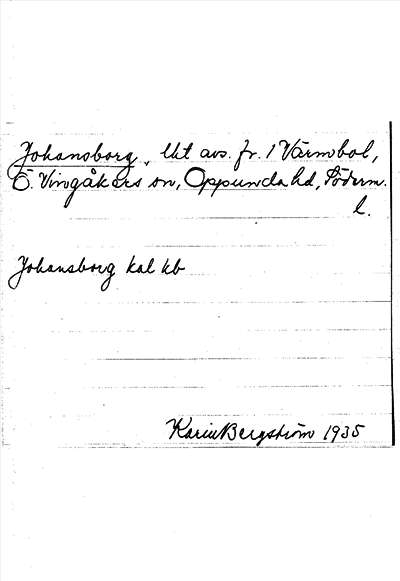 Johansborg, lht avs. fr. 1 Värmbol,
Ö. Vingåkers sn, Oppunda hd, Söderm.
l.
Johansborg kal kb
Karin Bergström 1935